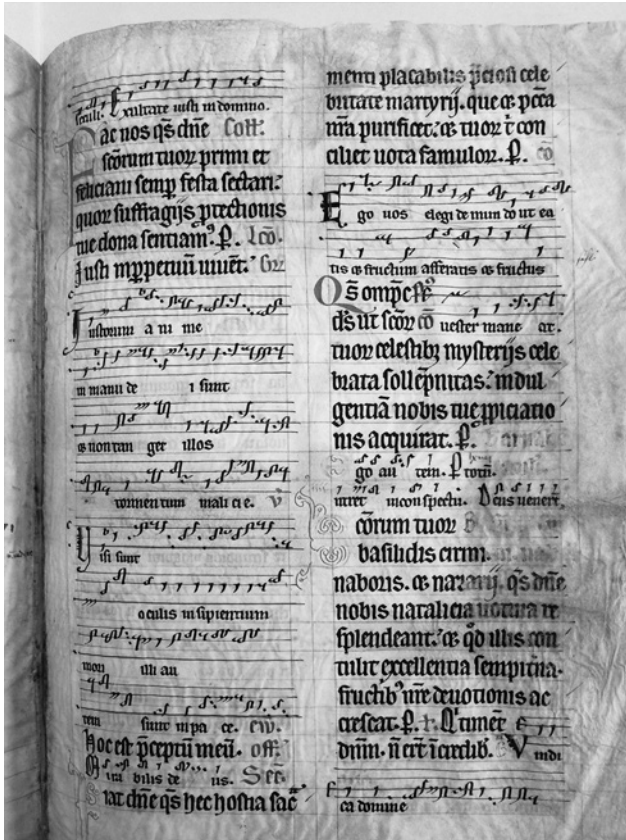 seculi. Exultate iusti in domino.
Fac nos q̄s dn̄e Coll.
sc̄orum tuoꝝ primi et
feliciani semp̱ festa sectari:
quoꝝ suffragijs ꝓtectionis
tue dona sentiam⁹. P. Lc̄o.
Iusti inꝑpetuū uiuēt.
Iustorum a ni me
in manu de i sunt
⁊ non tan get illos
tormentum mali ci e. V
Visi sunt
oculis insipientium
mori illi au
tem sunt in pa ce. ew̄.
Hoc est p̄ceptū meū. off.
Mira bilis de us. Secr.
Fiat dn̄e q̄s hec hostia sac̄
menti placabilis p̄ciosi cele
britate martyrij. que ⁊ pecc̄a
nr̄a purificet: ⁊ tuoꝝ t̄ con
ciliet uota famuloꝝ. P. cō
Ego uos elegi de mun do ut ea
tis ⁊ fructum afferatis ⁊ fructus
Q̄s omp̄s
ds̄ ut sc̄oꝝ uester mane at.
tuoꝝ celestibꝫ mysterijs cele
brata sollēpnitas: indul
gentiā nobis tue ꝓpiciatio
nis acquirat. P.
go au tem. P totm̄.
intret in conspectu. Deus uenerūt
Sc̄orum tuoꝝ
basilidis cirini.
naboris. ⁊ nazarij. q̄s dn̄e
nobis natalicia uotiua re
splendeant: ⁊ qd̄ illis con
tulit excellentia sempit̄na.
fructibꝰ nr̄e deuotionis ac
crescat. P. Timēt
dn̄m. Vindi
ca domine